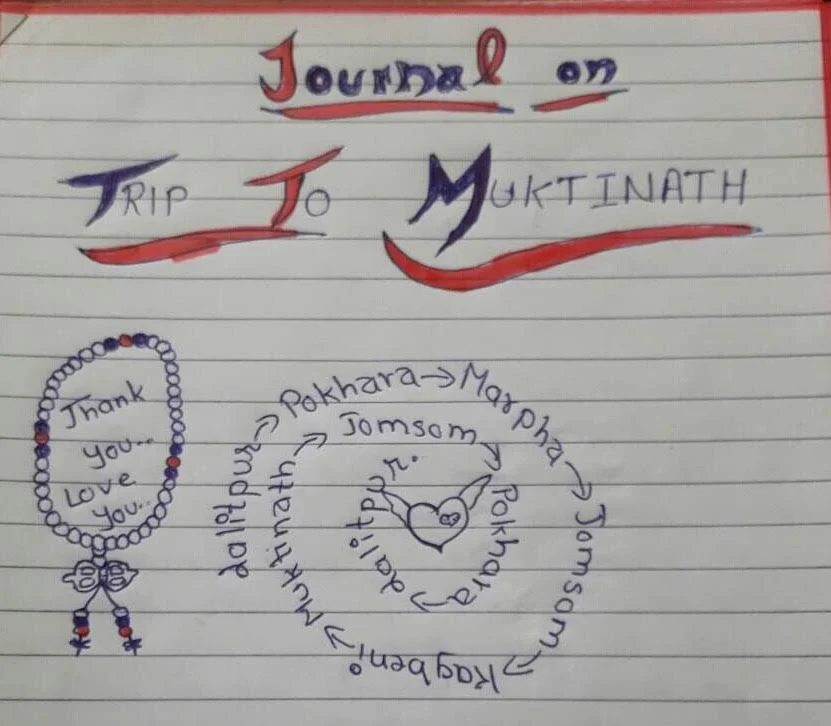 Journal on
TRIP TO MUKTINATH
Thank
you...
Love
you..
Lalitpur → Pokhara → Marpha → Jomsom → Kagbeni → Muktinath → Jomsom → Pokhara → Lalitpur.